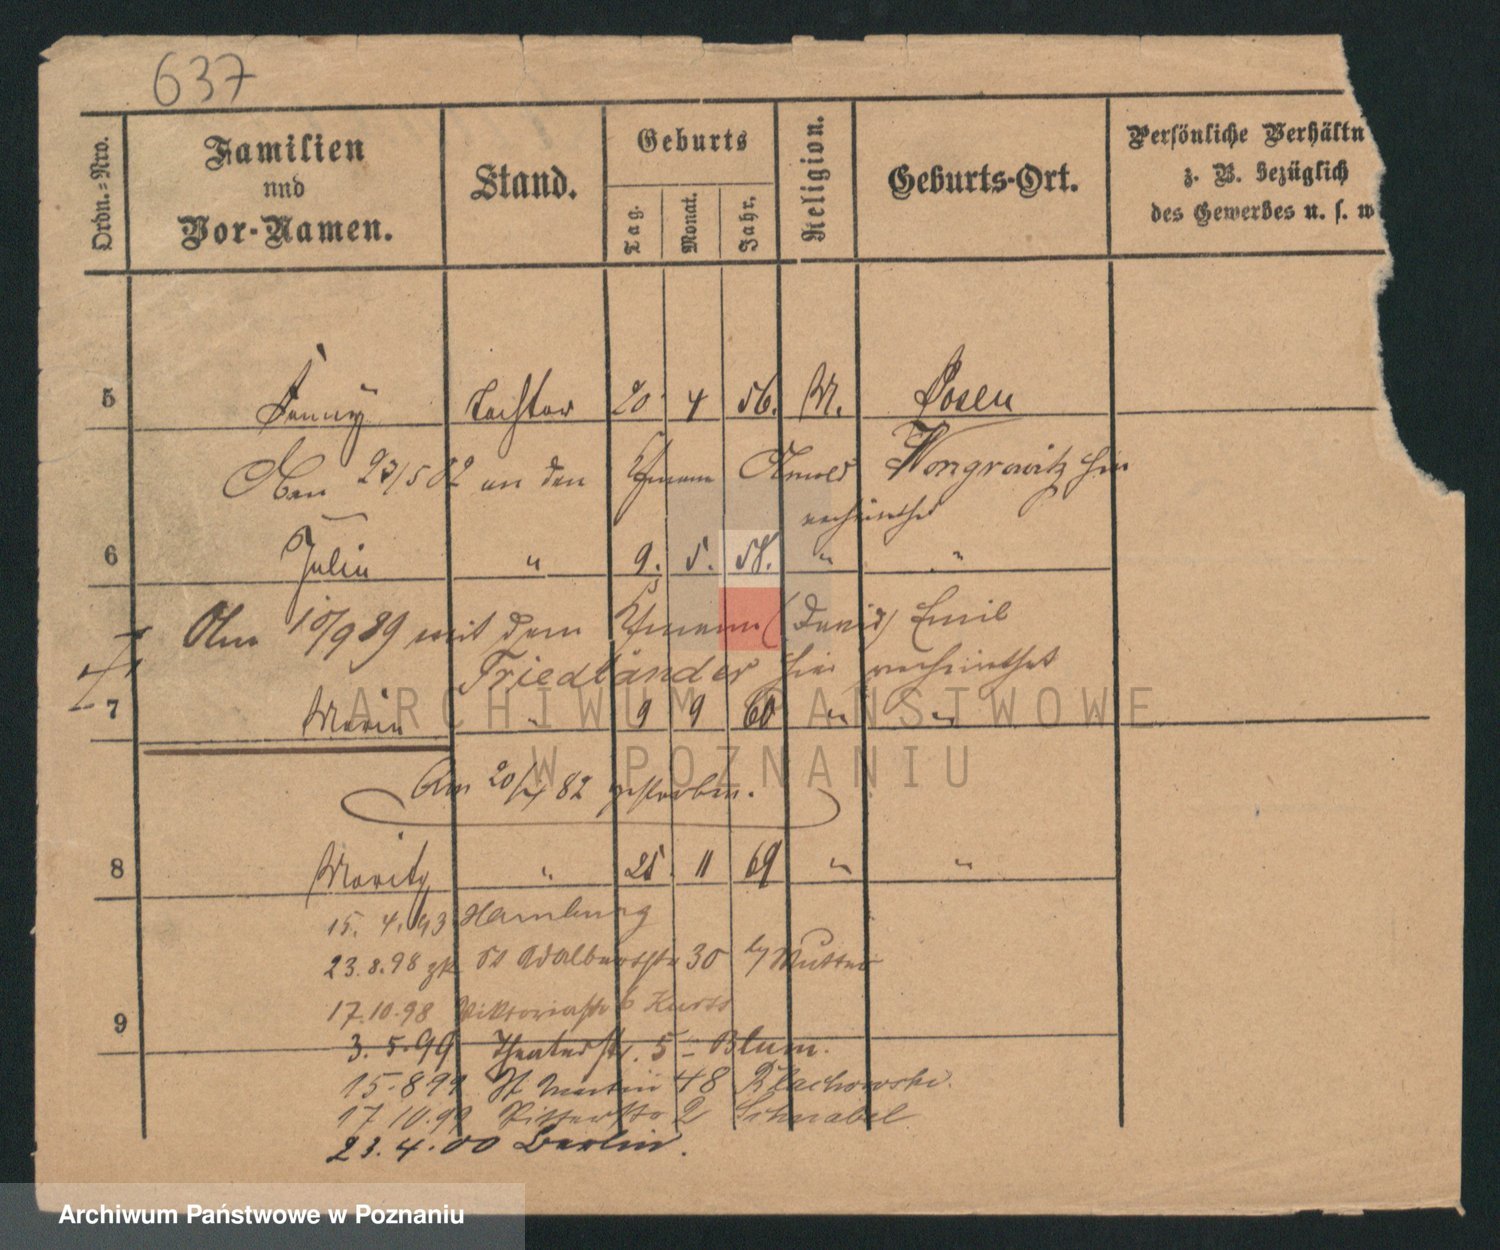 637
Ordn.-Nro.
Familien
und
Vor-Namen.
Stand.
Geburts
Tag.
Monat.
Jahr.
Religion.
Geburts-Ort.
Persönliche Verhältn
z. B. bezüglich
des Gewerbes u. s. w
5 Fanny Tochter 20 4 56. M. Posen
Am 23/5 82 an den Kfmann Arnold Wongrowitz hier
verheirathet
6 Julie " 9. 5. 58. " "
Am 10/9 89 mit dem Kfmann (David) Emil
Friedländer hier verheirathet
7 Marie " 9 9 60 " "
ARCHIWUM PAŃSTWOWE
W POZNANIU
Am 20/4 82 gestorben.
8 Moritz " 25 11 69 " "
15. 4. 93 Hamburg
23.8.98 zk St Adalbertstr 30 b/ Mutter
17.10.98 Viktoriastr 6
9
3. 5. 99 Theaterstr. 5 - Blum.
15.8 99 St Martin 48
17 10.99 Ritterstr 2 Schnabel
23.4.00 Berlin.
Archiwum Państwowe w Poznaniu